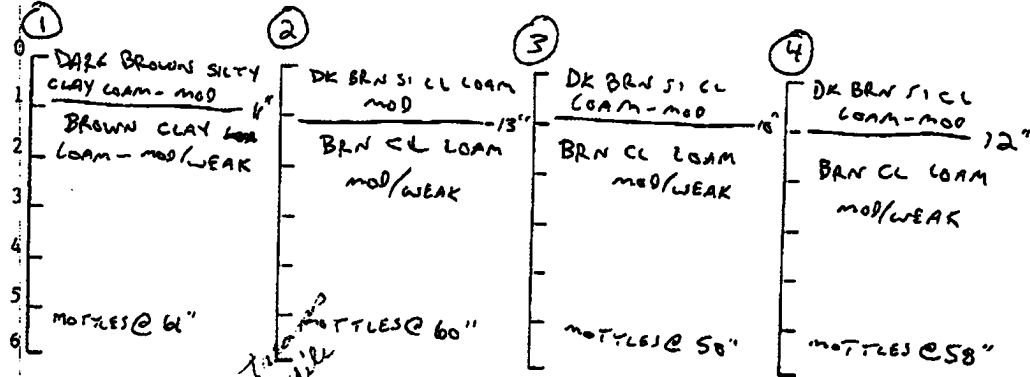 1
2
3
4
0
1
2
3
4
5
6
DARK BROWN SILTY
CLAY LOAM - MOD
11"
BROWN CLAY
LOAM - MOD/WEAK
MOTTLES @ 61"
DK BRN SI CL LOAM
MOD
13"
BRN CL LOAM
MOD/WEAK
MOTTLES @ 60"
DK BRN SI CL
LOAM - MOD
BRN CL LOAM
MOD/WEAK
MOTTLES @ 58"
DK BRN SI CL
LOAM - MOD
12"
BRN CL LOAM
MOD/WEAK
MOTTLES @ 58"